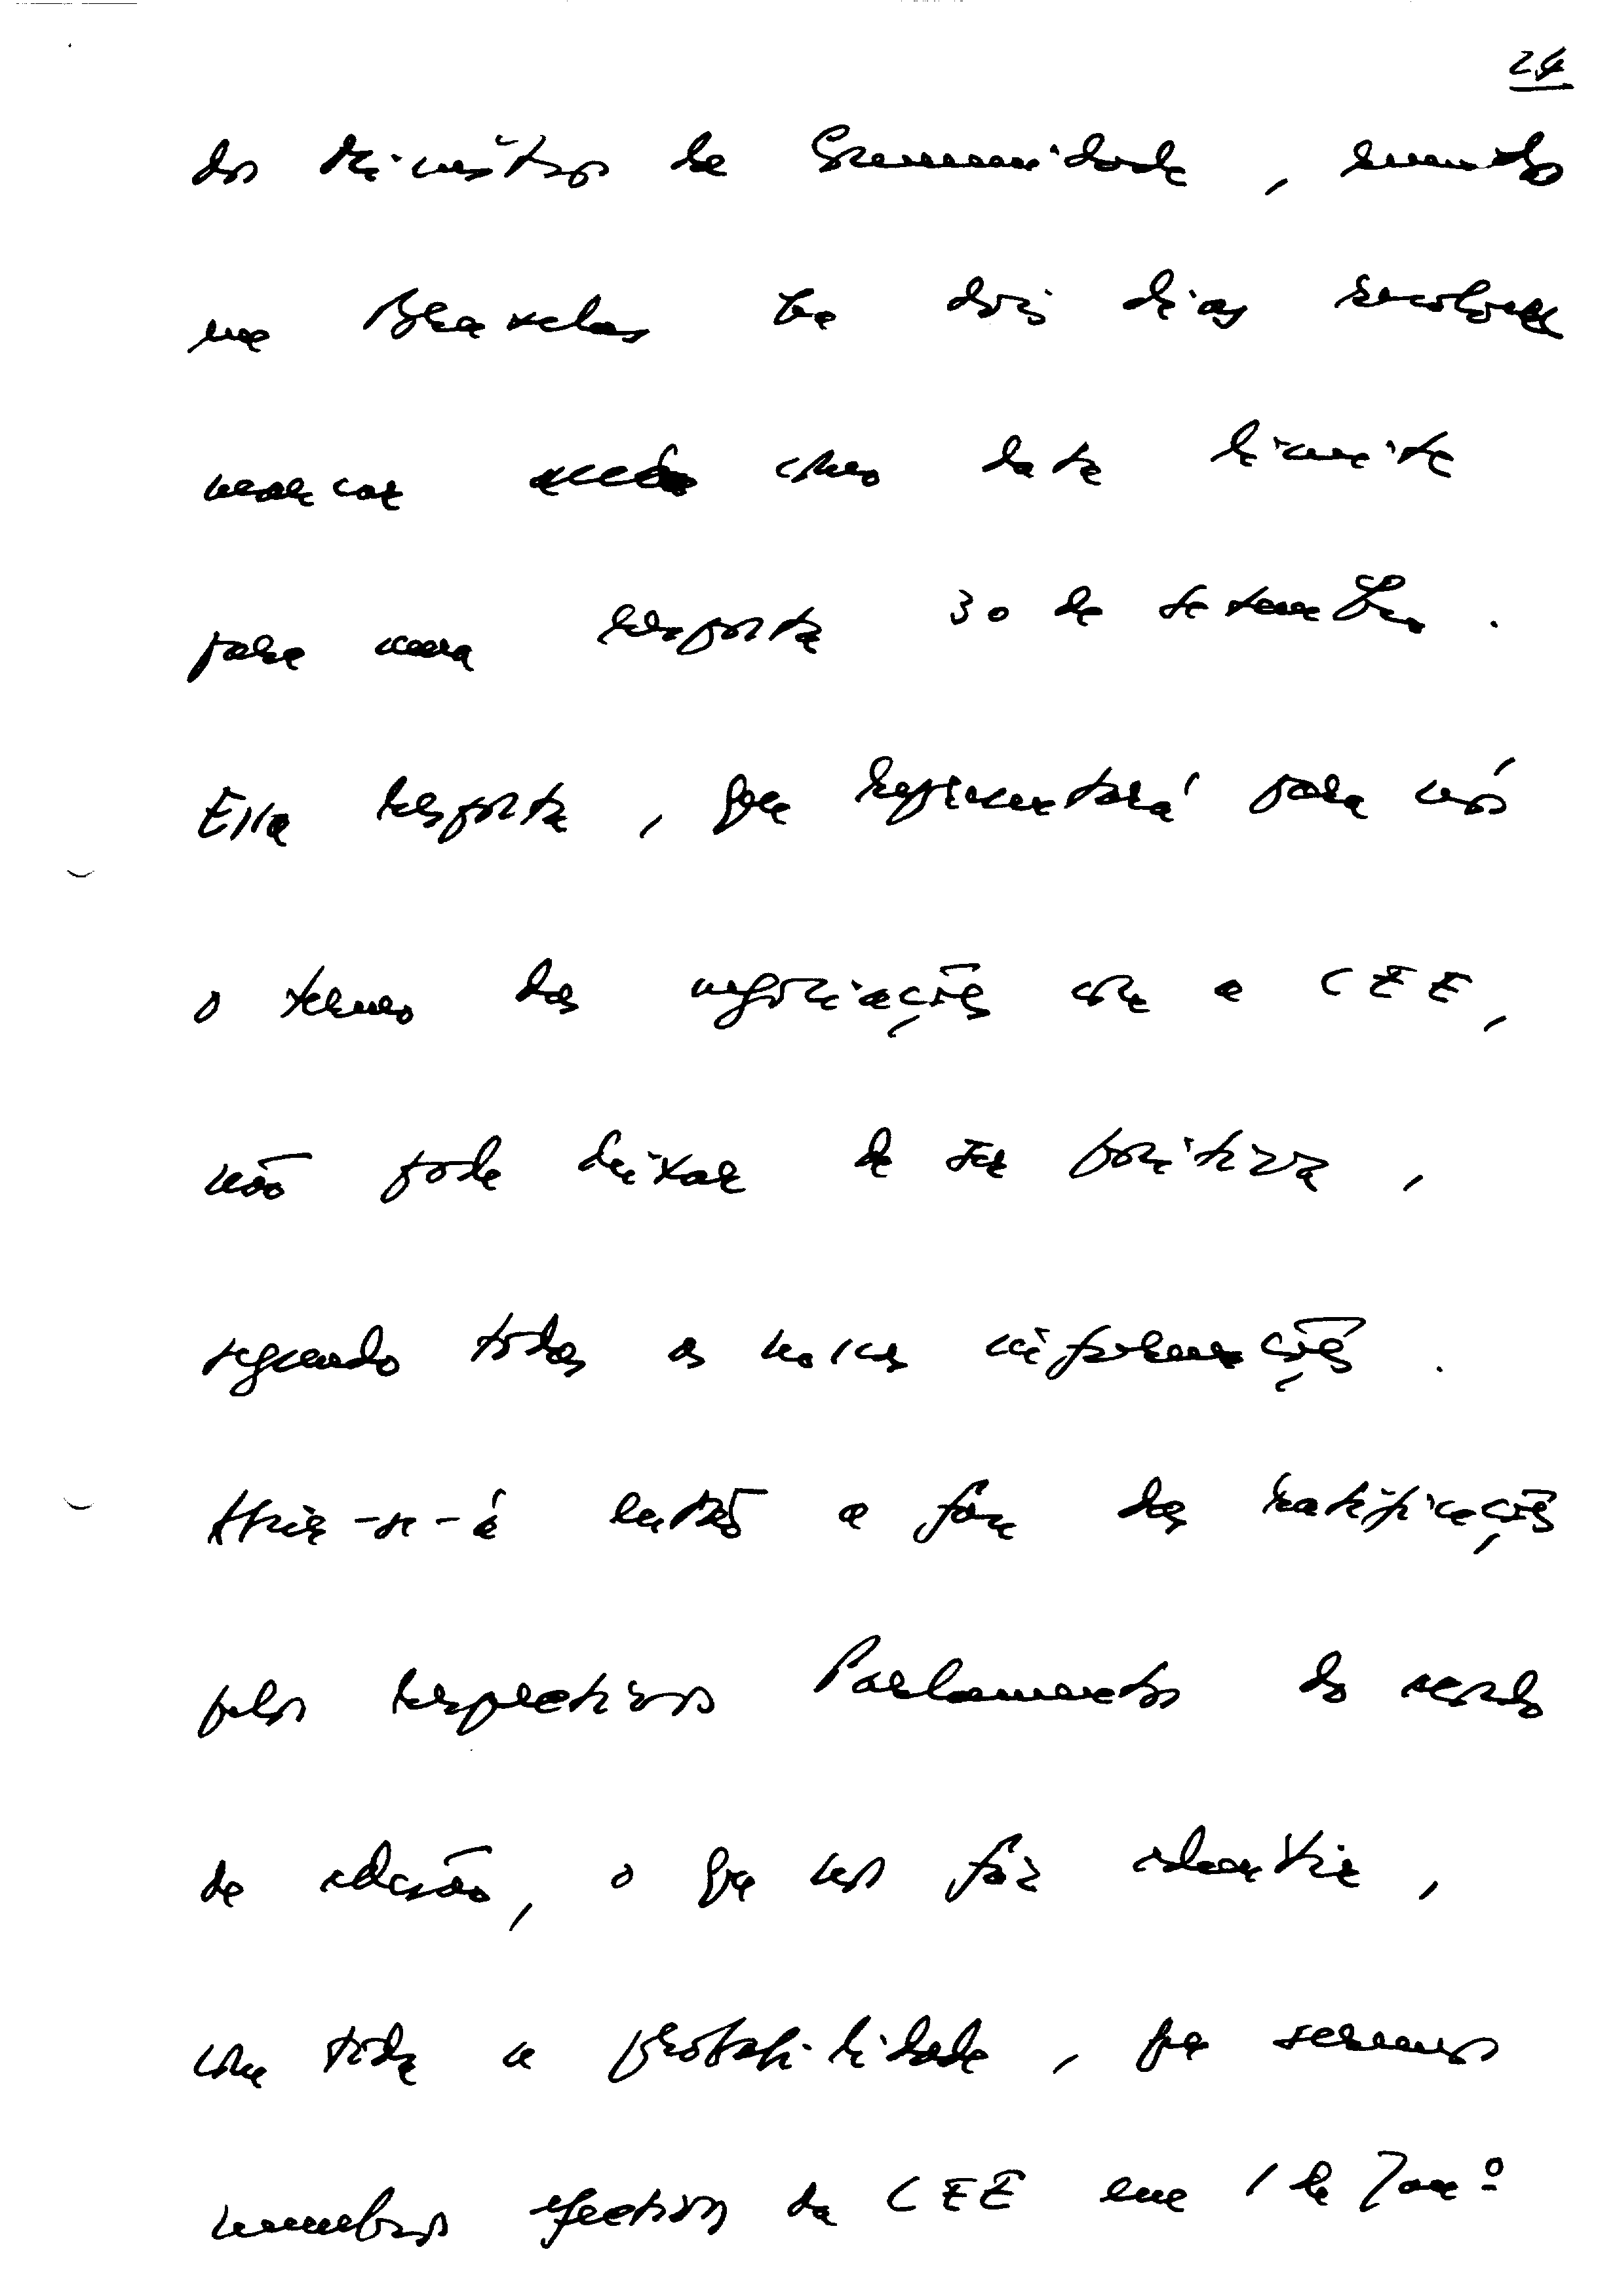 24
dos Ministros da Comunidade, reunido
em Bruxelas há dois dias resolveu
marcar como data limite
para uma resposta 30 de Setembro.
Essa resposta, que representará para nós
o termo das negociações com a CEE,
não pode deixar de ser positiva,
segundo todas as nossas informações.
Abrir-se-á então a fase das ratificações
pelos respectivos Parlamentos do acordo
de adesão, o que nos faz admitir,
com toda a probabilidade, que seremos
membros efectivos da CEE em 1 de Janº